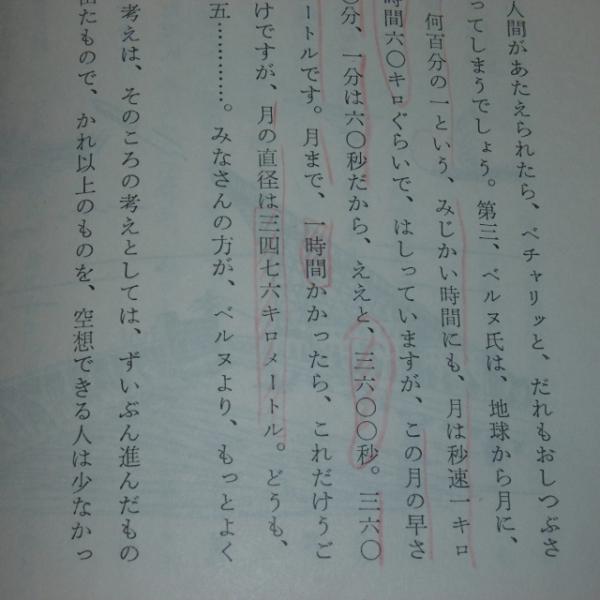 人間があたえられたら、ペチャリッと、だれもおしつぶさ
ってしまうでしょう。第三、ベルヌ氏は、地球から月に、
何百分の一という、みじかい時間にも、月は秒速一キロ
時間六〇キロぐらいで、はしっていますが、この月の早さ
〇分、一分は六〇秒だから、ええと、三六〇〇秒。三六〇
ートルです。月まで、一時間かかったら、これだけうご
けですが、月の直径は三四七六キロメートル。どうも、
五…………。みなさんの方が、ベルヌより、もっとよく
考えは、そのころの考えとしては、ずいぶん進んだもの
たもので、かれ以上のものを、空想できる人は少なかっ